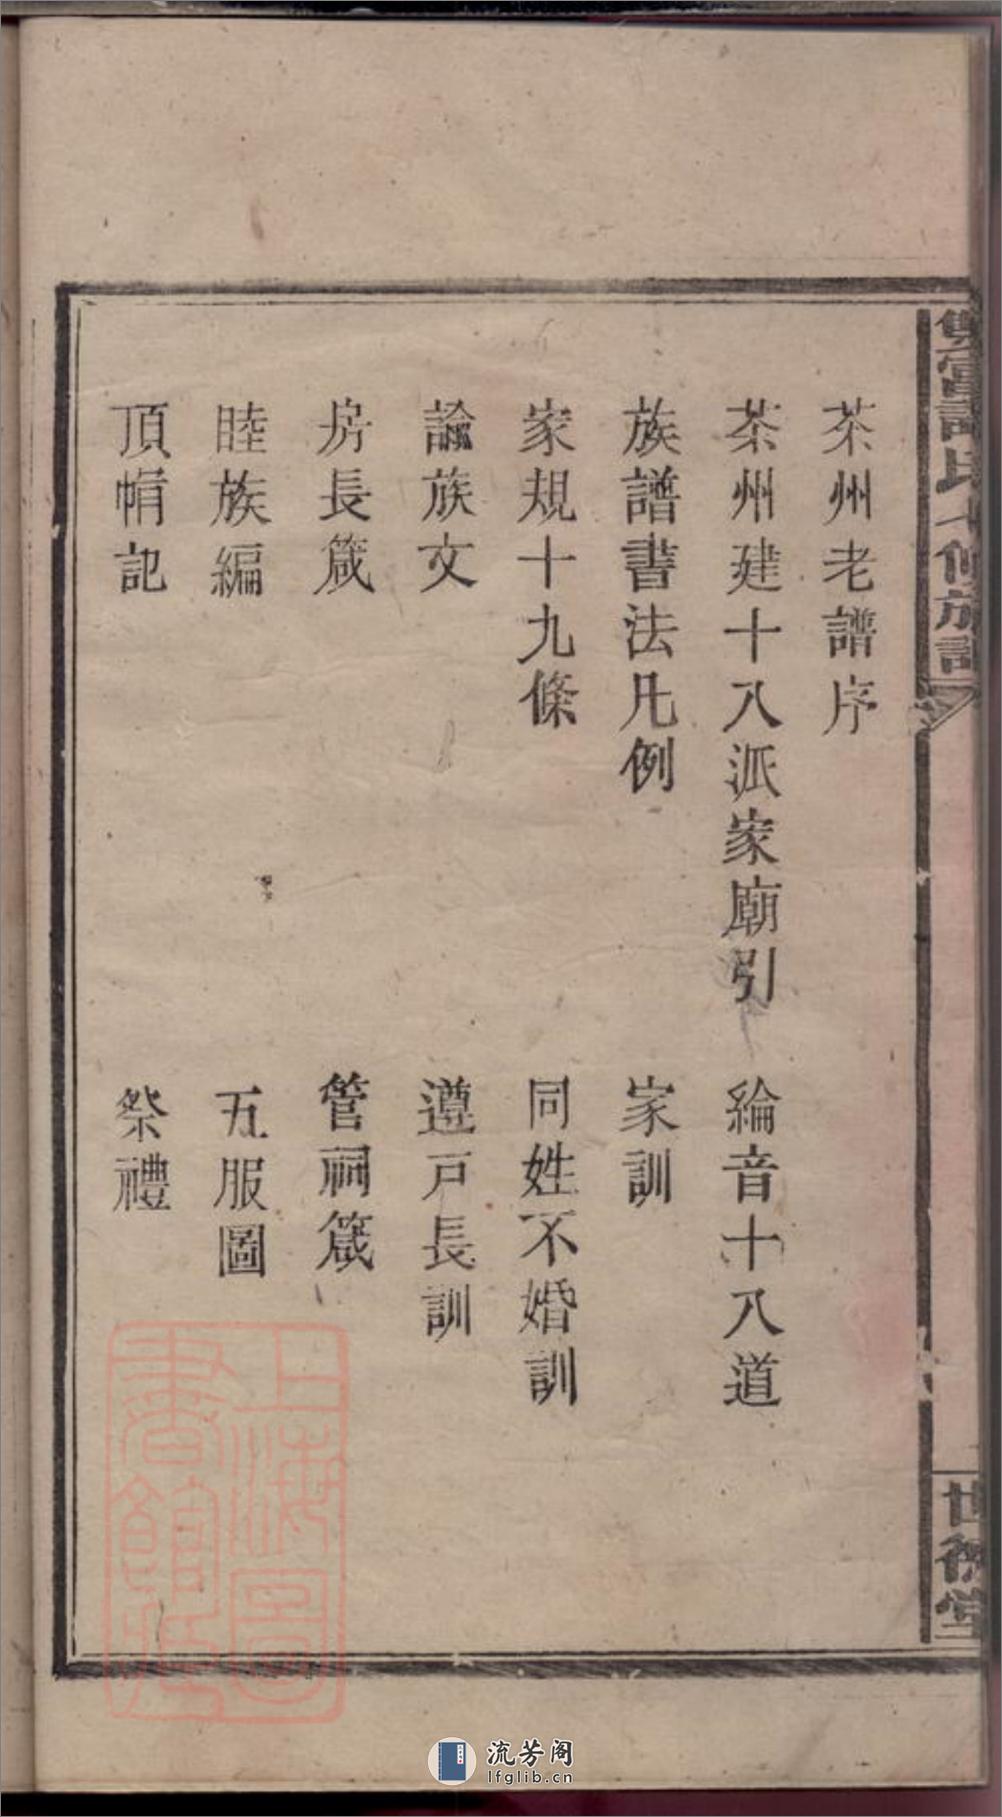 茶州老譜序
茶州建十八派家廟引
綸音十八道
族譜書法凡例
家訓
家規十九條
同姓不婚訓
諭族文
遵戸長訓
房長箴
管祠箴
睦族編
五服圖
頂㡌記
祭禮
世德堂
上海圖書館藏
流芳阁
lfglib.cn